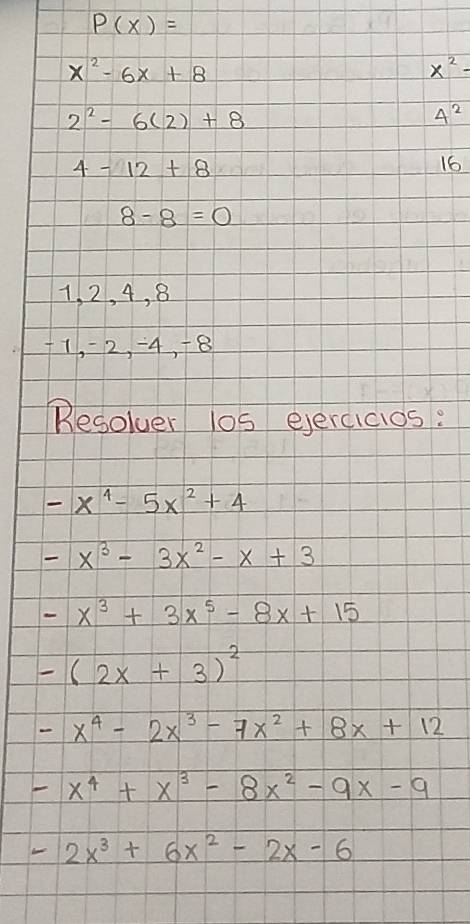 P(x) =
x² - 6x + 8
x² -
2² - 6(2) + 8
4²
4 - 12 + 8
16
8 - 8 = 0
1, 2, 4, 8
-1, -2, -4, -8
Resolver los ejercicios:
- x⁴ - 5x² + 4
- x³ - 3x² - x + 3
- x³ + 3x⁵ - 8x + 15
- (2x + 3)²
- x⁴ - 2x³ - 7x² + 8x + 12
- x⁴ + x³ - 8x² - 9x - 9
- 2x³ + 6x² - 2x - 6